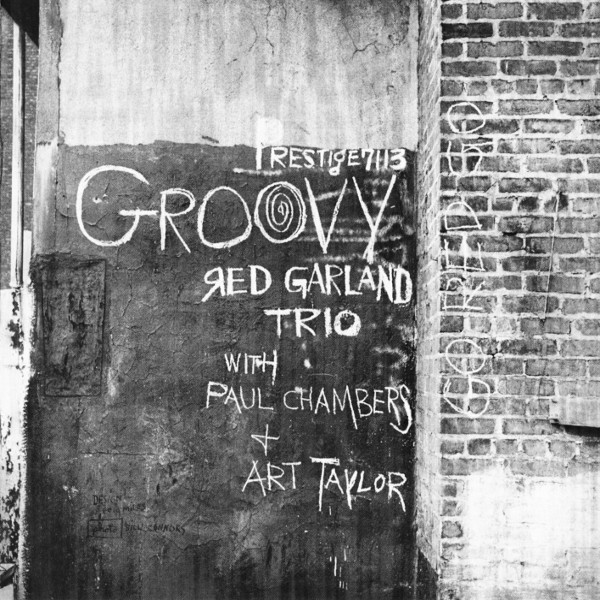 PRESTIgE7113
GROOVY
RED GARLAND
TRIO
WITH
PAUL CHAMBERS
+
ART TAYLOR
GO RED GO
DESIGN